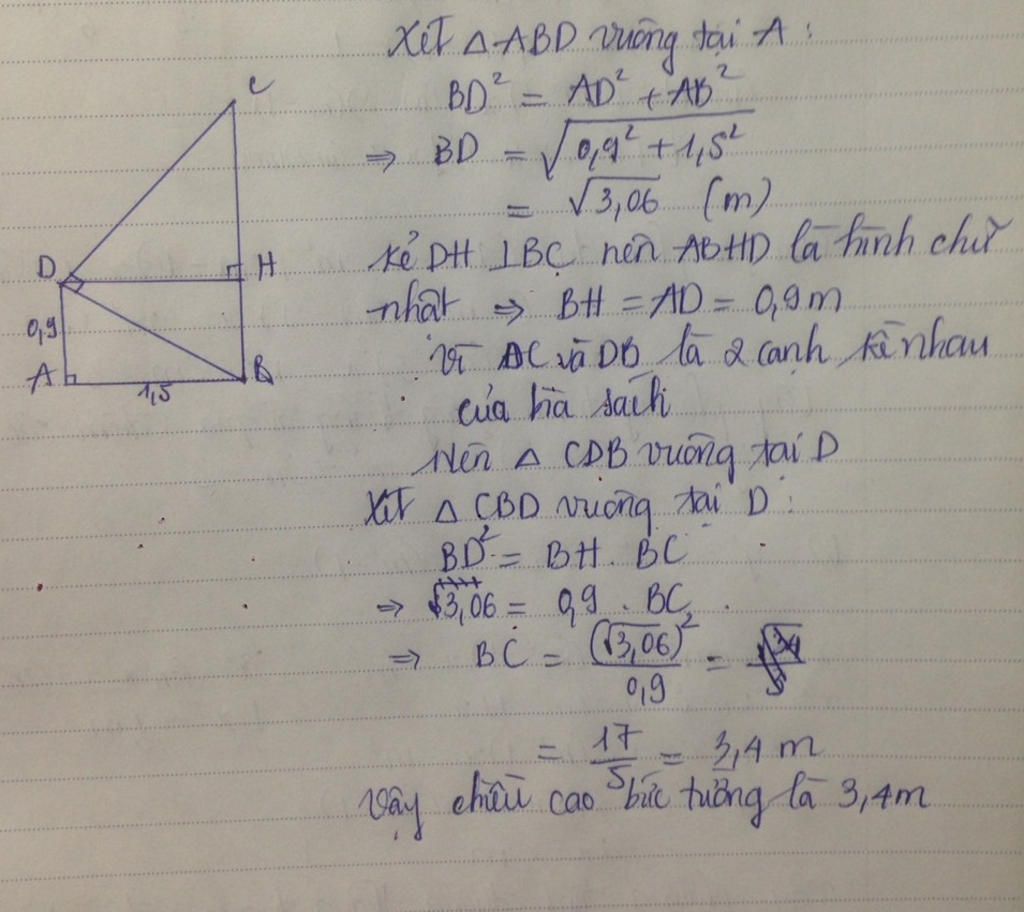 Xét △ ABD vuông tại A :
BD² = AD² + AB²
⇒ BD = √(0,9² + 1,5²)
= √3,06 (m)
kẻ DH ⊥ BC nên ABHD là hình chữ
nhật ⇒ BH = AD = 0,9m
Vì DC và DB là 2 cạnh kề nhau
của bìa sách
Nên △ CDB vuông tại D
Xét △ CBD vuông tại D :
BD² = BH . BC
⇒ 3,06 = 0,9 . BC
⇒ BC = (√3,06)² / 0,9 =
= 17/5 = 3,4 m
Vậy chiều cao bức tường là 3,4m
C
D
H
0,9
A
1,5
B